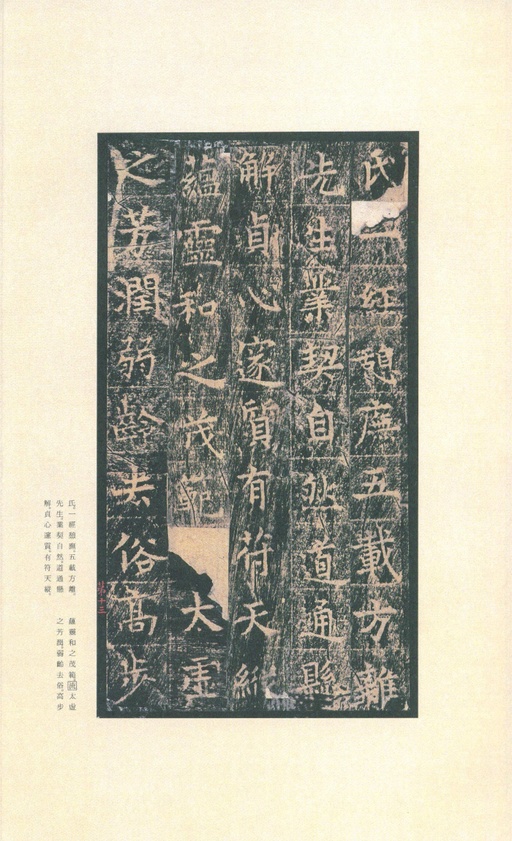 氏一經頹靡五載方離
先生業契自然道通縣
解貞心邃質有符天縱
蘊靈和之茂範太虛
之芳潤弱齡去俗高步
氏,一經頹靡,五載方離。
先生業契自然,道通懸
解,貞心邃質,有符天縱。
蘊靈和之茂範,太虛
之芳潤,弱齡去俗,高步